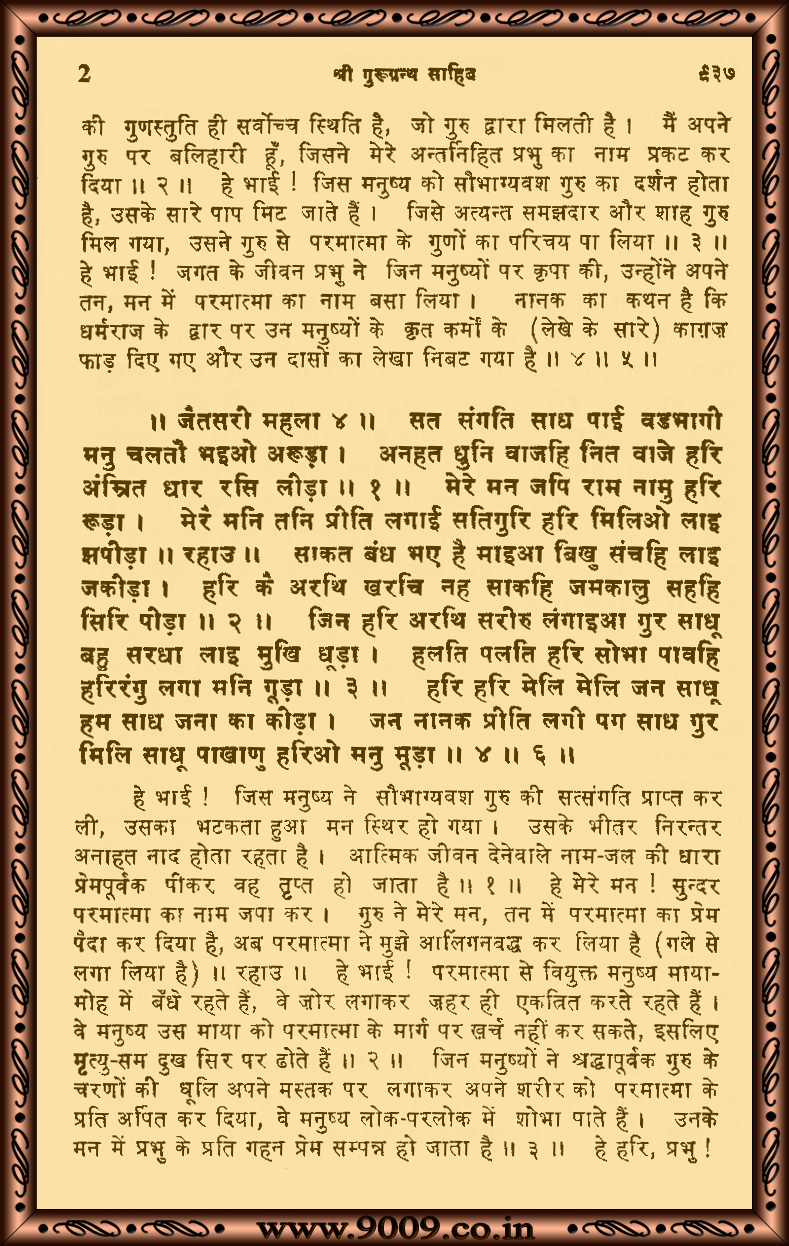 2 श्री गुरूग्रन्थ साहिब ६३७
की गुणस्तुति ही सर्वोच्च स्थिति है, जो गुरु द्वारा मिलती है । मैं अपने
गुरु पर बलिहारी हूँ, जिसने मेरे अन्तर्निहित प्रभु का नाम प्रकट कर
दिया ॥ २ ॥ हे भाई ! जिस मनुष्य को सौभाग्यवश गुरु का दर्शन होता
है, उसके सारे पाप मिट जाते हैं । जिसे अत्यन्त समझदार और शाह गुरु
मिल गया, उसने गुरु से परमात्मा के गुणों का परिचय पा लिया ॥ ३ ॥
हे भाई ! जगत के जीवन प्रभु ने जिन मनुष्यों पर कृपा की, उन्होंने अपने
तन, मन में परमात्मा का नाम बसा लिया । नानक का कथन है कि
धर्मराज के द्वार पर उन मनुष्यों के कृत कर्मों के (लेखे के सारे) काग़ज़
फाड़ दिए गए और उन दासों का लेखा निबट गया है ॥ ४ ॥ ५ ॥
॥ जैतसरी महला ४ ॥ सत संगति साध पाई वडभागी
मनु चलतौ भइओ अरूड़ा । अनहत धुनि वाजहि नित वाजे हरि
अंम्रित धार रसि लीड़ा ॥ १ ॥ मेरे मन जपि राम नामु हरि
रूड़ा । मेरै मनि तनि प्रीति लगाई सतिगुरि हरि मिलिओ लाइ
झपीड़ा ॥ रहाउ ॥ साकत बंध भए है माइआ बिखु संचहि लाइ
जकीड़ा । हरि कै अरथि खरचि नह साकहि जमकालु सहहि
सिरि पीड़ा ॥ २ ॥ जिन हरि अरथि सरीरु लगाइआ गुर साधू
बहु सरधा लाइ मुखि धूड़ा । हलति पलति हरि सोभा पावहि
हरिरंगु लगा मनि गूड़ा ॥ ३ ॥ हरि हरि मेलि मेलि जन साधू
हम साध जना का कीड़ा । जन नानक प्रीति लगी पग साध गुर
मिलि साधू पाखाणु हरिओ मनु मूड़ा ॥ ४ ॥ ६ ॥
हे भाई ! जिस मनुष्य ने सौभाग्यवश गुरु की सत्संगति प्राप्त कर
ली, उसका भटकता हुआ मन स्थिर हो गया । उसके भीतर निरन्तर
अनाहत नाद होता रहता है । आत्मिक जीवन देनेवाले नाम-जल की धारा
प्रेमपूर्वक पीकर वह तृप्त हो जाता है ॥ १ ॥ हे मेरे मन ! सुन्दर
परमात्मा का नाम जपा कर । गुरु ने मेरे मन, तन में परमात्मा का प्रेम
पैदा कर दिया है, अब परमात्मा ने मुझे आलिंगनबद्ध कर लिया है (गले से
लगा लिया है) ॥ रहाउ ॥ हे भाई ! परमात्मा से वियुक्त मनुष्य माया-
मोह में बँधे रहते हैं, वे ज़ोर लगाकर ज़हर ही एकत्रित करते रहते हैं ।
वे मनुष्य उस माया को परमात्मा के मार्ग पर ख़र्च नहीं कर सकते, इसलिए
मृत्यु-सम दुख सिर पर ढोते हैं ॥ २ ॥ जिन मनुष्यों ने श्रद्धापूर्वक गुरु के
चरणों की धूलि अपने मस्तक पर लगाकर अपने शरीर को परमात्मा के
प्रति अर्पित कर दिया, वे मनुष्य लोक-परलोक में शोभा पाते हैं । उनके
मन में प्रभु के प्रति गहन प्रेम सम्पन्न हो जाता है ॥ ३ ॥ हे हरि, प्रभु !
www.9009.co.in